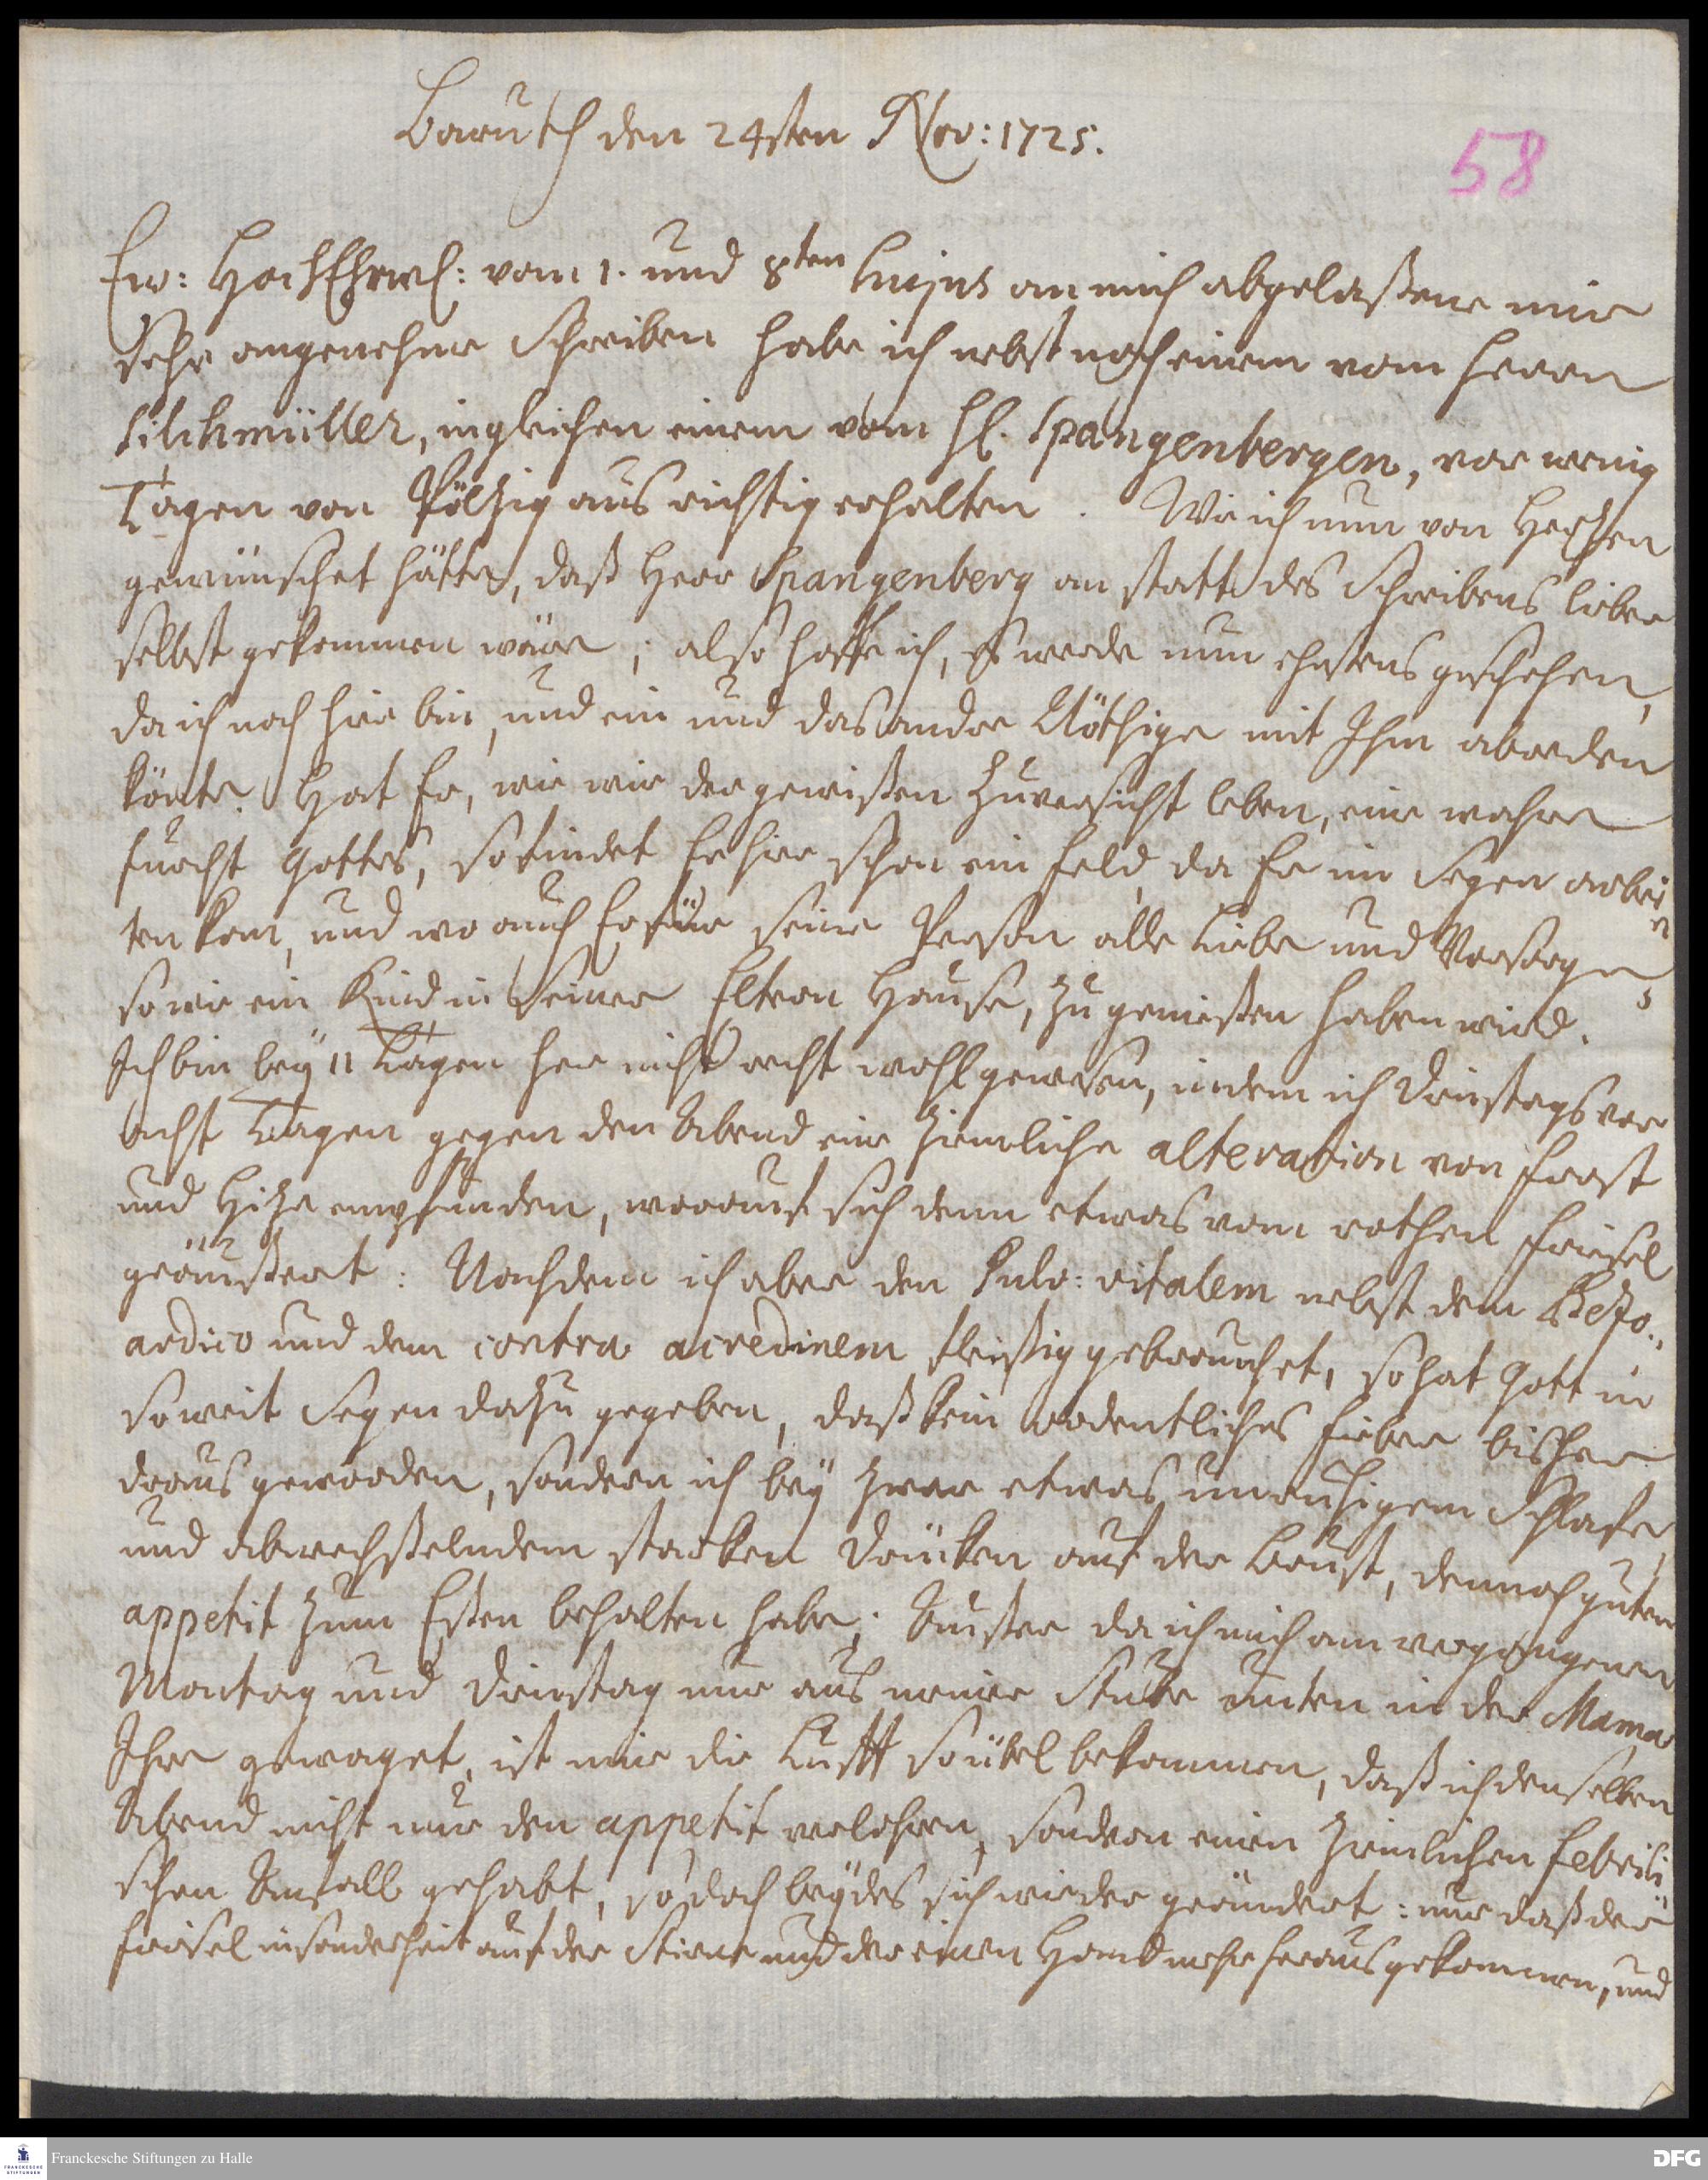 Baruth den 24sten Nov: 1725.
58
Ew: HochEhrw: vom 1. und 8ten hujus an mich abgelaßene mir
sehr angenehme Schreiben habe ich nebst noch einem vom Herrn
Silchmüller, ingleichen einem vom H. Spangenbergen, vor wenig
Tagen von Pöltzig aus richtig erhalten. Wie ich nun von Hertzen
gewünschet hätte, daß Herr Spangenberg an statt des Schreibens lieber
selbst gekommen wäre; also hoffe ich, es werde nun ehestens geschehen,
da ich noch hier bin, und ein und das andre Nöthige mit Ihm abreden
könte. Hat Er, wie wir der gewißen Zuversicht leben, eine wahre
Furcht Gottes, so findet Er hier schon ein Feld, da Er im Segen arbei
ten kan, und wo auch Er für seine Person alle Liebe und Vorsorge,
so wie ein Kind in seiner Eltern Hause, zu genießen haben wird.
Ich bin bey 11 Tagen her nicht recht wohl gewesen, indem ich Dienstags vor
acht Tagen gegen den Abend eine ziemliche alteration von Frost
und Hitze empfunden, worauf sich denn etwas vom rothen Friesel
geäußert: Nachdem ich aber den Pulv: vitalem nebst dem Bezo-
ardico und dem contra acredinem fleißig gebrauchet, so hat Gott in
soweit Segen dazu gegeben, daß kein ordentliches Fieber bisher
draus geworden, sondern ich bey zwar etwas unruhigem Schlafe,
und abwechßelndem starken Drücken auf der Brust, dennoch guten
appetit zum Eßen behalten habe; Außer da ich mich am vergangenen
Montag und Dienstag nur aus meiner Stube unten in der Mama
Ihre gewaget, ist mir die Lufft so übel bekommen, daß ich denselben
Abend nicht nur den appetit verlohren, sondern einen ziemlichen febrili
schen Anfall gehabt, so doch beydes sich wieder geändert: nur daß der
Friesel insonderheit auf der Stirne und der einen Hand mehr heraus gekommen, und
Franckesche Stiftungen zu Halle
DFG